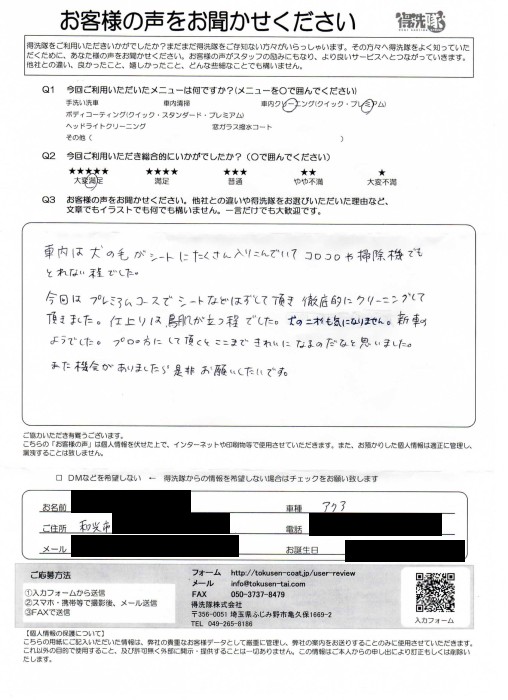 お客様の声をお聞かせください
得洗隊
得洗隊をご利用いただきいかがでしたか?まだまだ得洗隊をご存知ない方々がいらっしゃいます。その方々へ得洗隊をよく知っていた
だくために、あなた様の声をお聞かせください。お客様の声がスタッフの励みにもなり、より良いサービスへとつながっていきます。
他社との違い、良かったこと、嬉しかったこと、どんな些細なことでも構いません。
Q1 今回ご利用いただいたメニューは何ですか?(メニューを〇で囲んでください)
手洗い洗車 車内清掃 車内クリーニング(クイック・プレミアム)
ボディコーティング(クイック・スタンダード・プレミアム)
ヘッドライトクリーニング 窓ガラス撥水コート
その他( )
Q2 今回ご利用いただき総合的にいかがでしたか?(〇で囲んでください)
★★★★★ ★★★★ ★★★ ★★ ★
大変満足 満足 普通 やや不満 大変不満
Q3 お客様の声をお聞かせください。他社との違いや得洗隊をお選びいただいた理由など、
文章でもイラストでも何でも構いません。一言だけでも大歓迎です。
車内は犬の毛がシートにたくさん入りこんでいてコロコロや掃除機でも
とれない程でした。
今回はプレミアムコースでシートなどはずして頂き徹底的にクリーニングして
頂きました。仕上りは鳥肌が立つ程でした。犬のニオイも気になりません。新車の
ようでした。プロの方にして頂くとここまできれいになるのだなと思いました。
また機会がありましたら是非お願いしたいです。
ご協力いただき有難うございます。
こちらの「お客様の声」は個人情報を伏せた上で、インターネットや印刷物等で使用させていただきます。また、お預かりした個人情報は適正に管理し、
漏洩することは致しません。
□ DMなどを希望しない ← 得洗隊からの情報を希望しない場合はチェックをお願い致します
お名前 車種 アクア
ご住所 和光市 電話
メール お誕生日
ご応募方法
①入力フォームから送信
②スマホ・携帯等で撮影後、メール送信
③FAXで送信
フォーム http://tokusen-coat.jp/user-review
メール info@tokusen-tai.com
FAX 050-3737-8479
得洗隊株式会社
〒356-0051 埼玉県ふじみ野市亀久保1669-2
TEL 049-265-8186
入力フォーム
【個人情報の保護について】
こちらの用紙にご記入いただいた情報は、弊社の貴重なお客様データとして厳重に管理し、弊社の案内をお送りすることのみに使用させていただきます。
これ以外の目的で使用すること、及び許可無く外部に開示・提供することは一切ありません。この情報はご本人からの申し出により訂正もしくは削除い
たします。